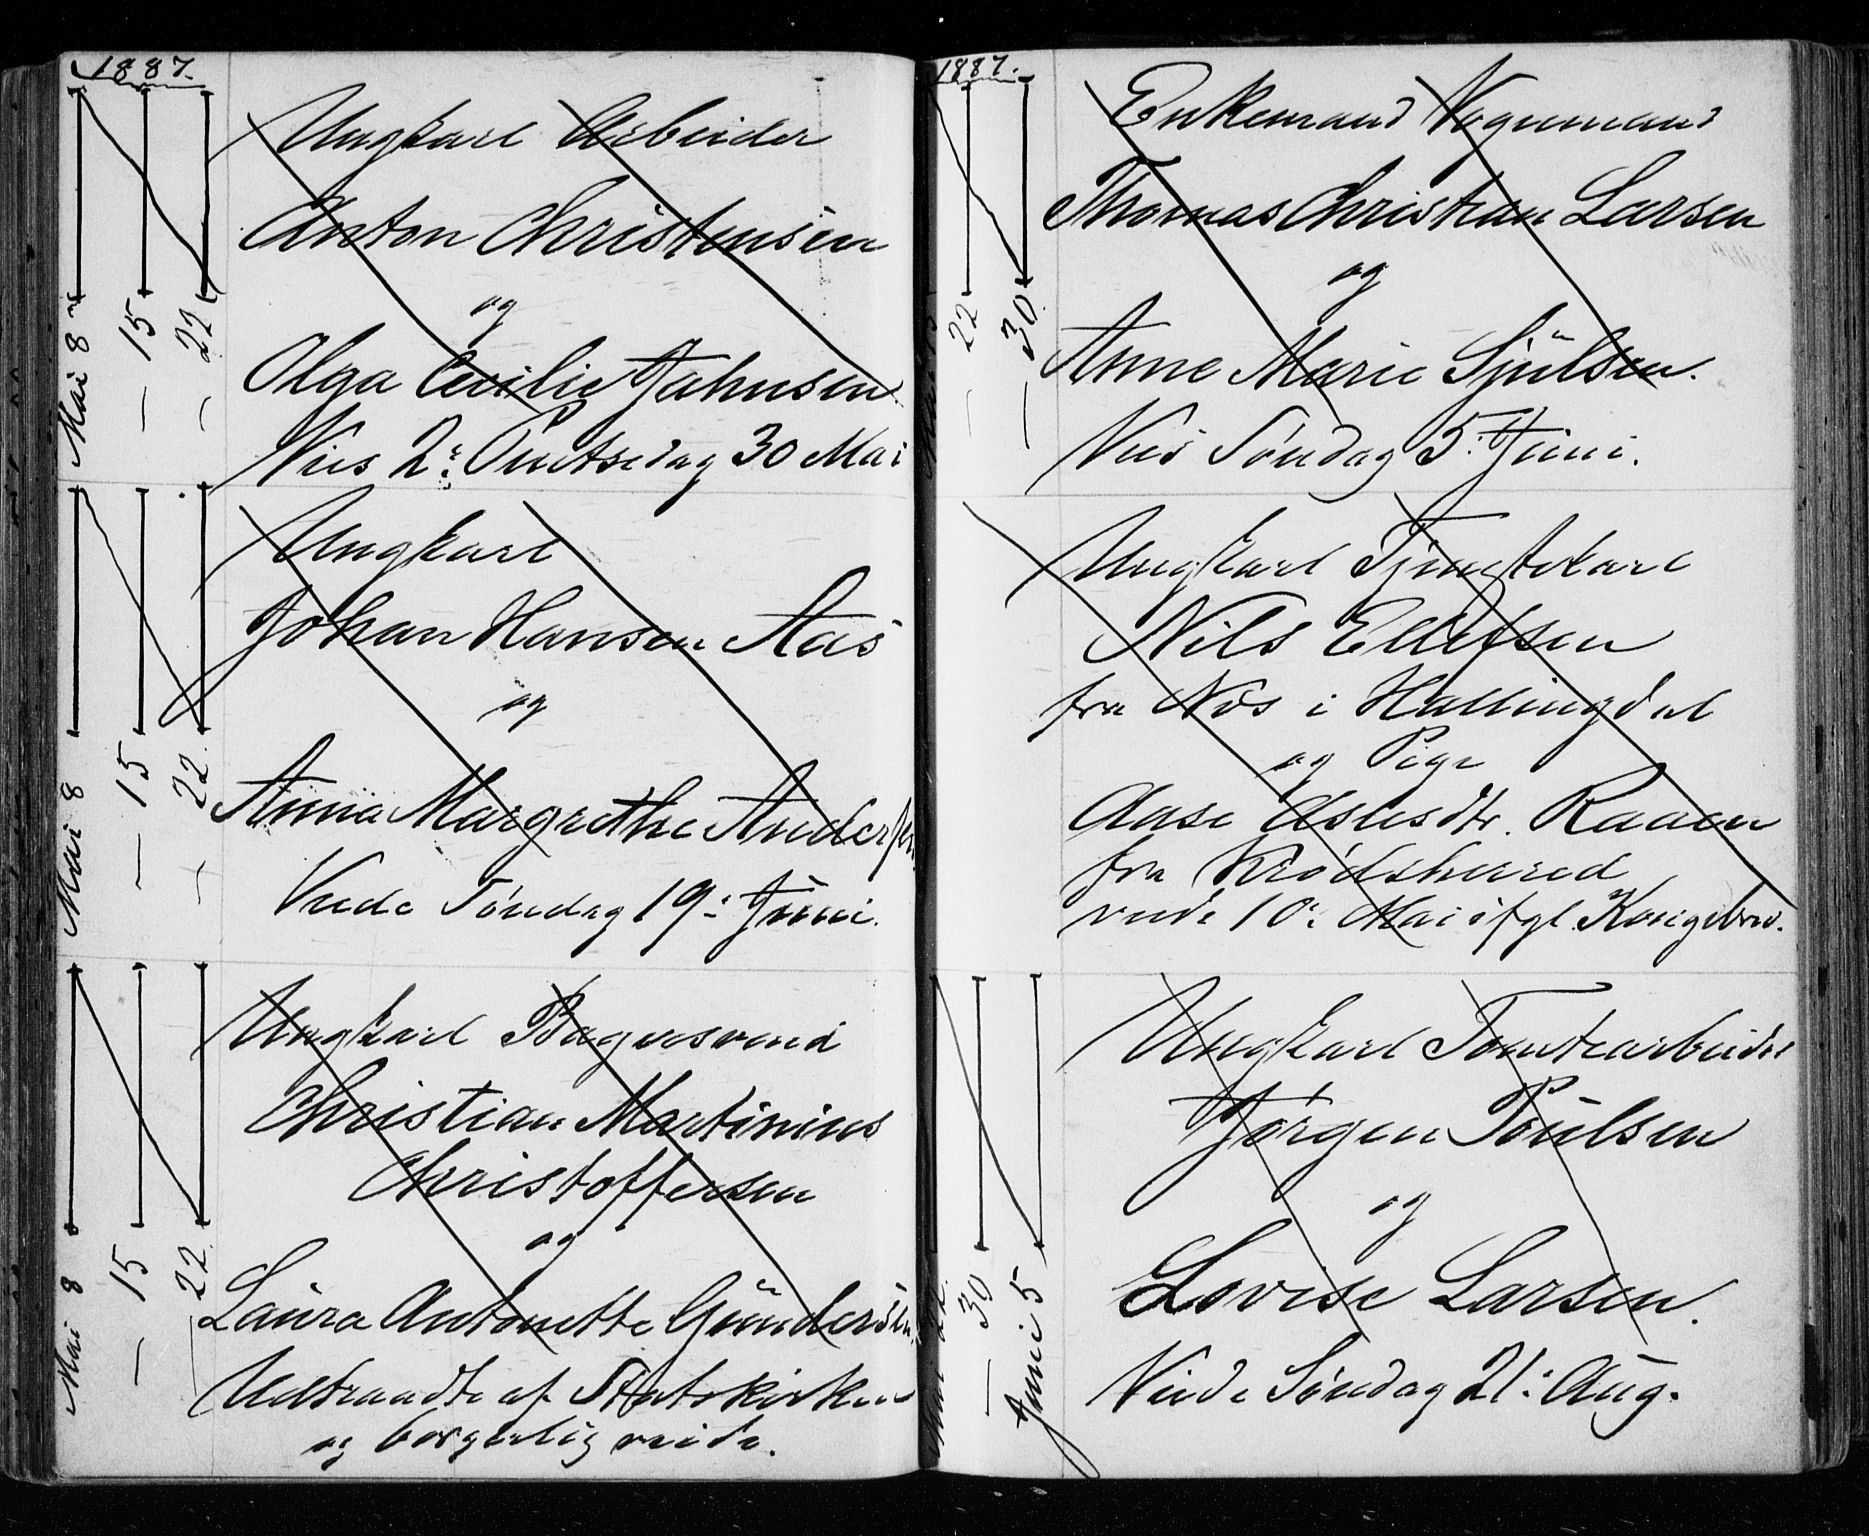 1887.
Mai 8
— 15
— 22
Ungkarl Arbeider
Anton Christensen
og
Olga Cecilie Jahnsen
Vies 2: Pintsedag 30 Mai
Mai 8
— 15
— 22
Ungkarl
Johan Hansen Aas
og
Anna Margrethe Andersen
Viede Søndag 19: Juni.
Mai 8
— 15
— 22
Ungkarl Bagersvend
Christian Martinius
Christoffersen
og
Laura Antonette Gundersen
Udtraadte af Statskirken
og borgerlig viede.
1887.
— 22
— 30
Enkemand Vognmand
Thomas Christian Larsen
og
Anne Marie Sjulsen.
Vies Søndag 5: Juni.
Ungkarl Tjenestekarl
Nils Ellefsen
fra Næs i Hallingdal
og Pige
Aase Aslesdtr. Raaen
fra Krødsherred
viede 10: Mai ifgl. Kongebrev.
Mai 22
— 30
Juni 5
Ungkarl Tomtearbeider
Jørgen Poulsen
og
Lovise Larsen.
Viede Søndag 21: Aug.